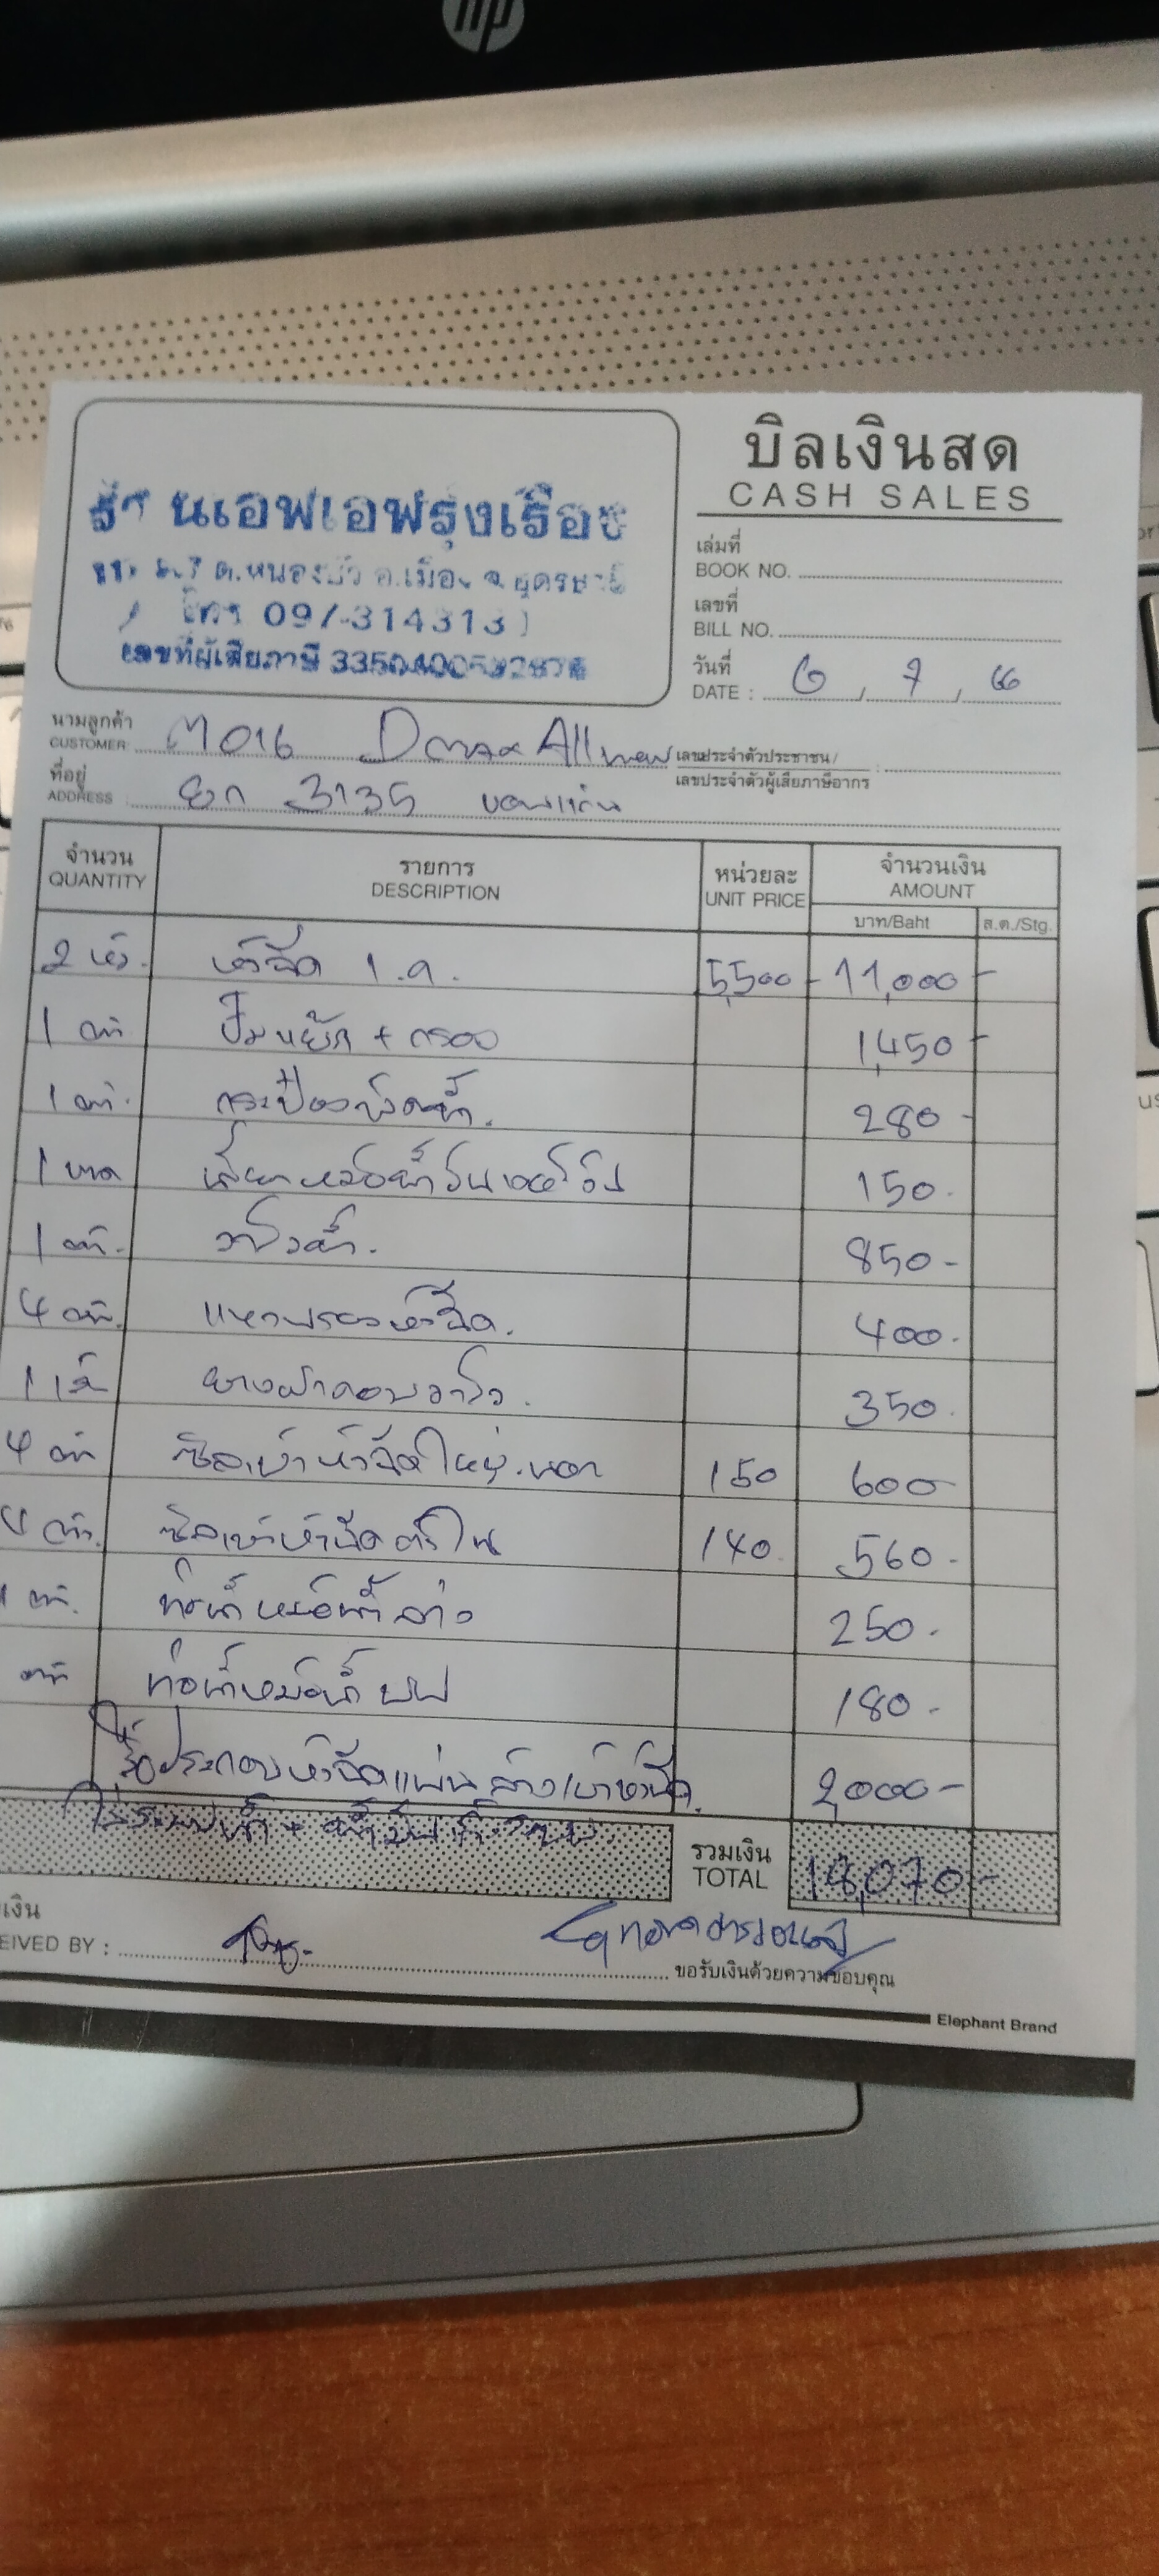 hp
บิลเงินสด
CASH SALES
ร้านเอฟเอฟรุ่งเรือง
ม.7 ต.หนองบัว อ.เมือง จ.อุดรธานี
โทร 09
เลขที่ผู้เสียภาษี
เล่มที่
BOOK NO.
เลขที่
BILL NO.
วันที่
DATE : 6 / 7 / 66
นามลูกค้า
CUSTOMER M016 Dmax All new
เลขประจำตัวประชาชน /
เลขประจำตัวผู้เสียภาษีอากร :
ที่อยู่
ADDRESS : ยก 3135 ขอนแก่น
จำนวน รายการ หน่วยละ จำนวนเงิน
QUANTITY DESCRIPTION UNIT PRICE AMOUNT
บาท/Baht ส.ต./Stg.
2 หัว. หัวฉีด 1.9. 5,500 - 11,000 -
1 ตัว ปั๊มแย๊ก + กรอง 1,450 -
1 ตัว. กระป๋องพัดน้ำ. 280 -
1 ขวด หม้อน้ำ 150.
1 ตัว. วาล์วน้ำ. 850 -
4 ตัว. แหวนรองหัวฉีด. 400.
1 เส้น ยางฝาครอบวาล์ว. 350.
4 ตัว ซิลเบ้าหัวฉีดใหญ่.นอก 150 600
4 ตัว. ซิลเบ้าหัวฉีดตัวใน 140. 560 -
1 ตัว. ท่อน้ำหม้อน้ำล่าง 250.
ตัว ท่อน้ำหม้อน้ำบน 180.
รื้อประกอบหัวฉีดแผ่นล้างเบ้าหัวฉีด. 2,000 -
รวมเงิน
TOTAL 18,070 -
เงิน
EIVED BY :
ขอรับเงินด้วยความขอบคุณ
Elephant Brand